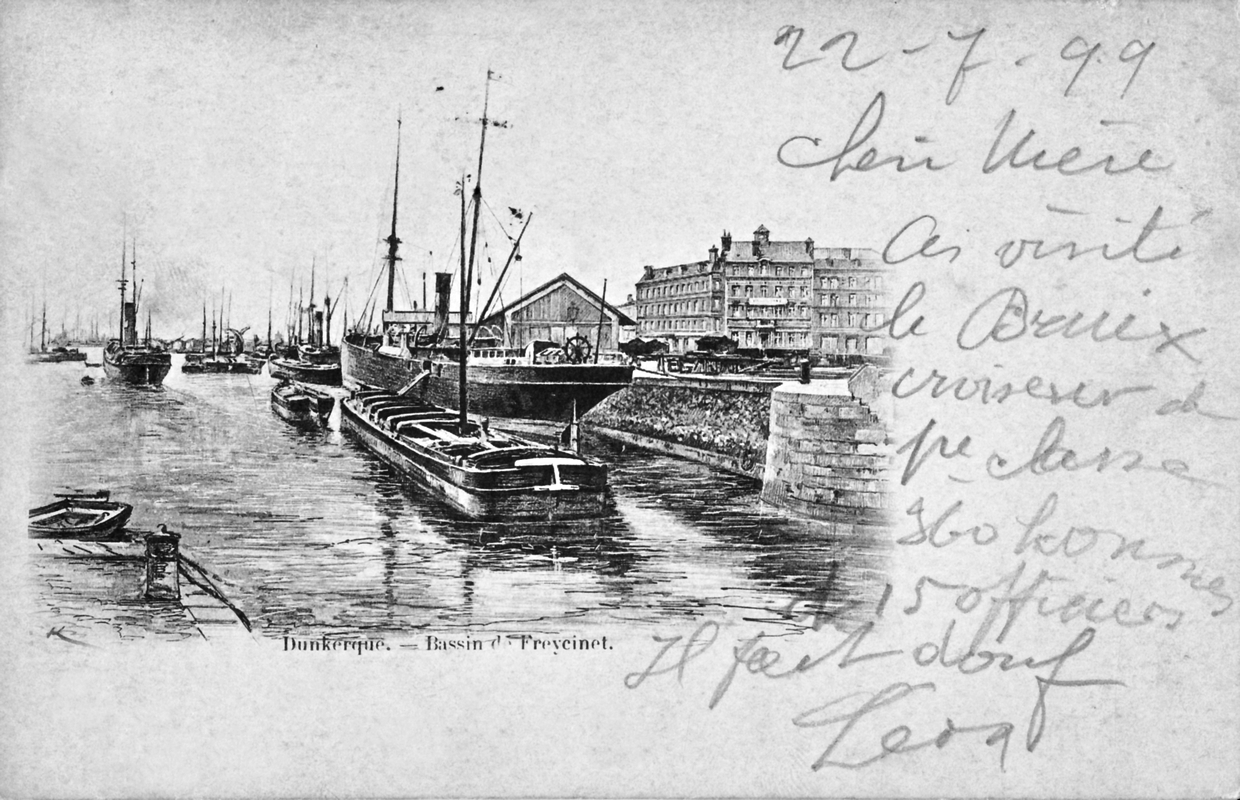 22-7-99
Cheri Mère
As visité
le Bruix
croiseur de
pe classe
360 hommes
et 15 officiers
Il fait
Dunkerque. — Bassin de Freycinet.
K